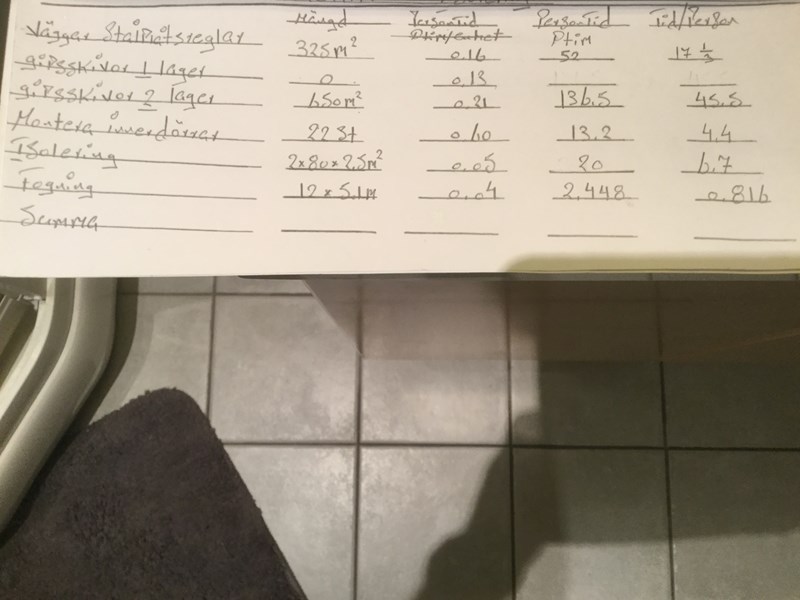 Mängd Persontid Persontid Tid/Person
Ptim/enhet Ptim
Väggar Stålplåtsreglar 325m² 0.16 52 17 1/3
gipsskivor 1 lager 0 0.13
gipsskivor 2 lager 650m² 0.21 136.5 45.5
Montera innerdörrar 22 St 0.60 13.2 4.4
Isolering 2x80x2.5m² 0.05 20 6.7
Fogning 12 x 5.1m 0.04 2.448 0.816
Summa